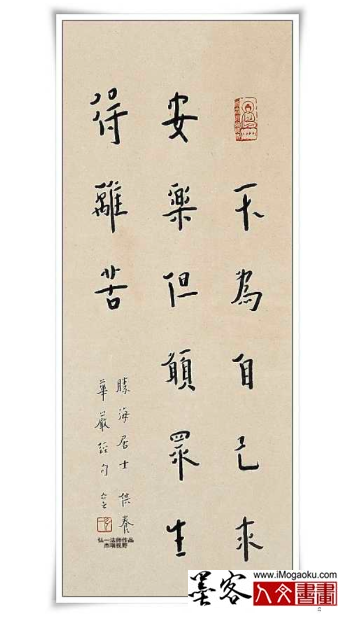 不為自己求
安樂但願眾生
得離苦
勝海居士供養
華嚴經句
弘一法師作品
杰瑞视野
www.iMogaoku.com
墨客
人文書畫